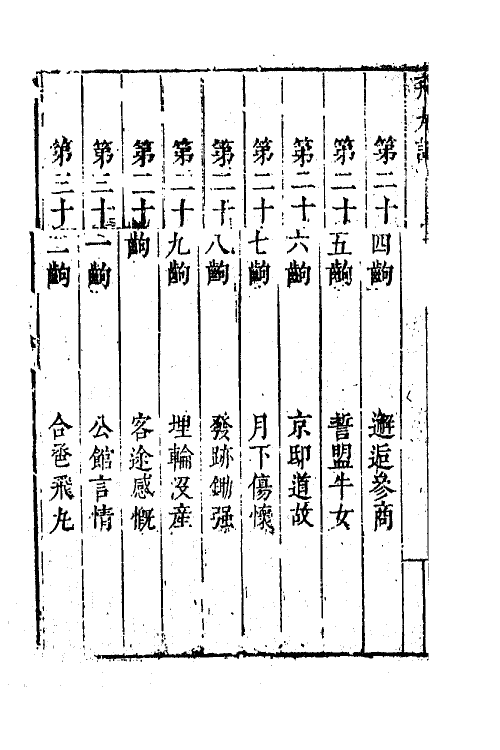 飛丸記
第二十四齣　邂逅參商
第二十五齣　誓盟牛女
第二十六齣　京邸道故
第二十七齣　月下傷懷
第二十八齣　發跡鋤强
第二十九齣　埋輪沒産
第三十齣　客途感慨
第三十一齣　公館言情
第三十二齣　合巹飛丸